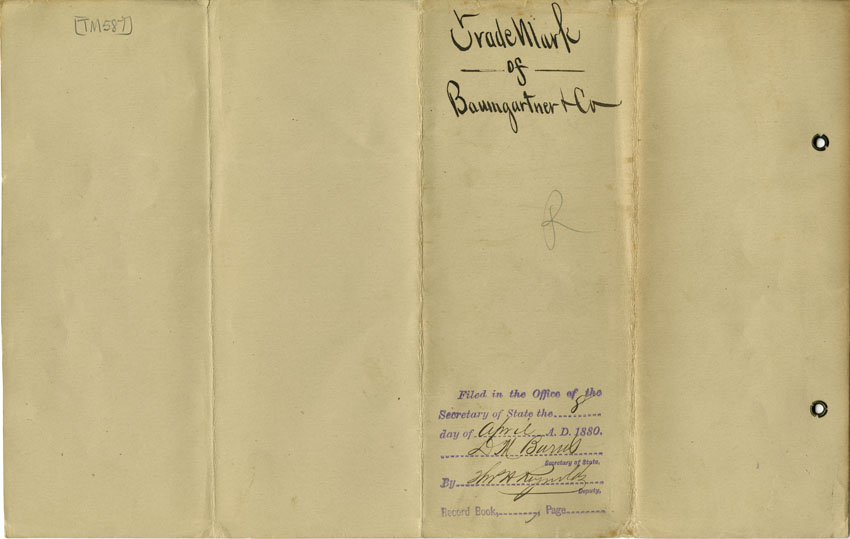 [TM587]
Trade Mark
of
Baumgartner & Co
R
Filed in the Office of the
Secretary of State the 8
day of April A. D. 1880.
D M Burns
Secretary of State.
By Thos H Reynolds
Deputy.
Record Book, , Page